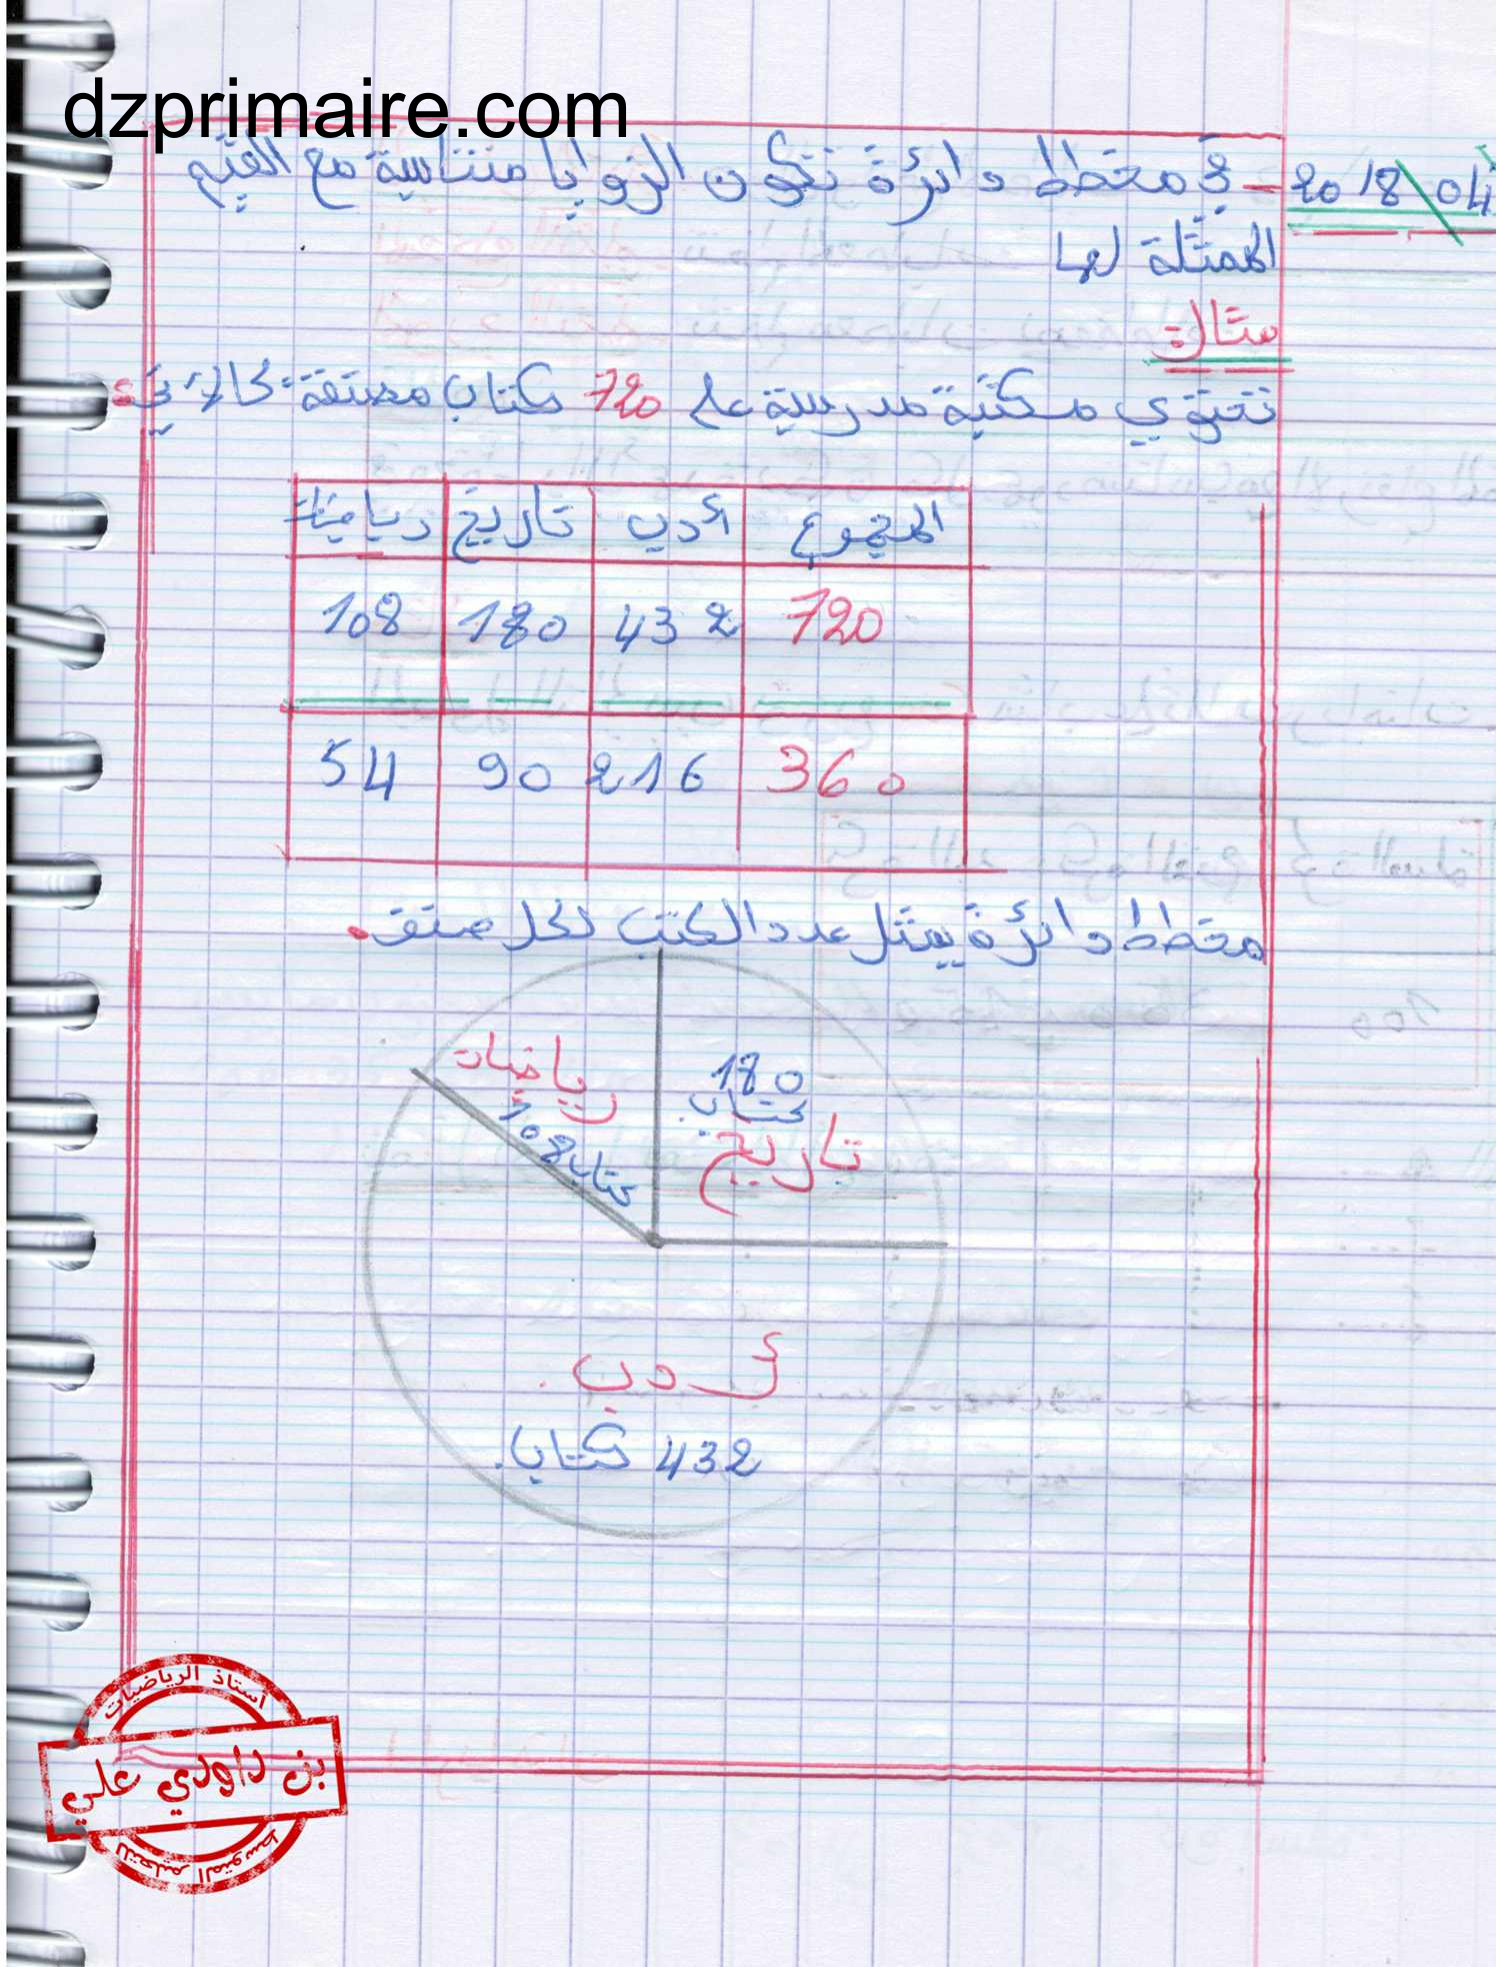 dzprimaire.com
2018\04
- في مخطط دائرة تكون الزوايا متناسبة مع القيم
الممثلة لها
مثال:
تحتوي مكتبة مدرسية على 720 كتاب مصنفة كالآتي:
المجموع أدب تاريخ رياضيات
720 432 180 108
360 216 90 54
مخطط دائرة يمثل عدد الكتب لكل صنف.
رياضيات
108 كتاب
180
كتاب
تاريخ
أدب
432 كتاب.
أستاذ الرياضيات
بن داودي علي
للتعليم المتوسط